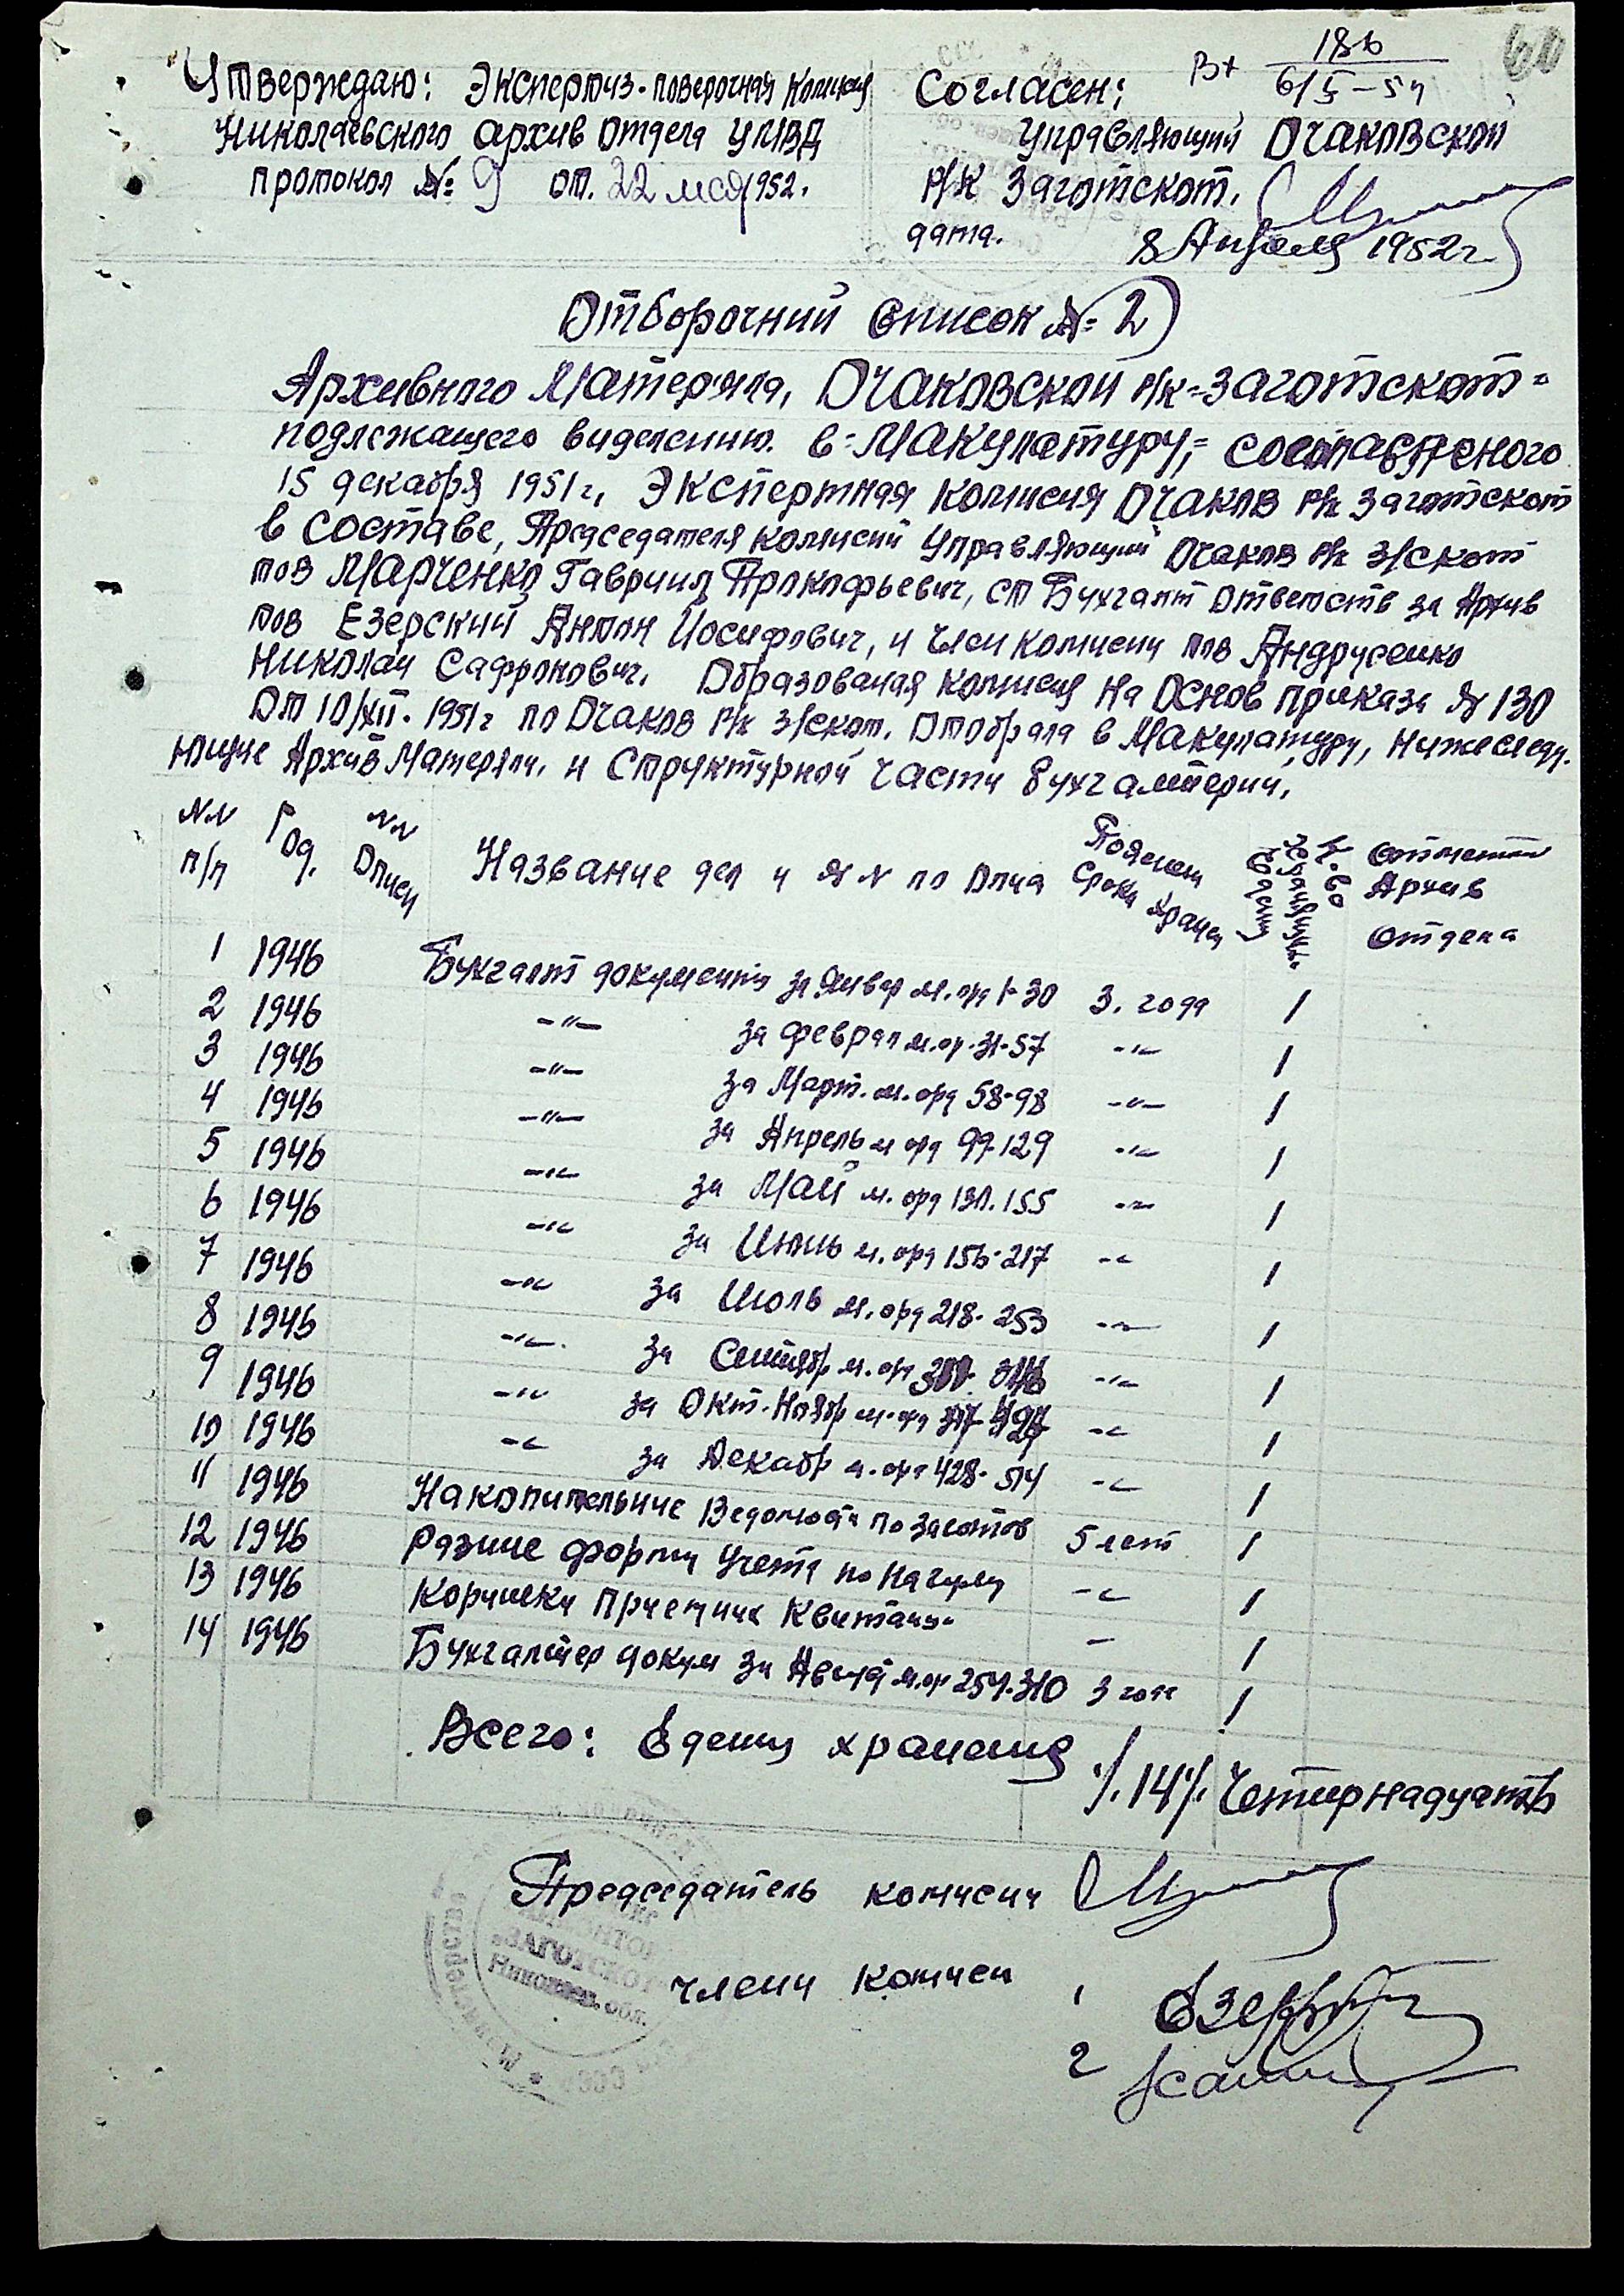 Вх 186
6/5-54
60
Утверждаю: Экспертиз-поверочная комисия
Николаевского архив отдела УМВД
протокол №: 9 от. 22 мая 1952.
Согласен:
Управляющий Очаковской
р/к Заготскот.
дата. 8 Апреля 1952г.
Отборочний список №: 2
Архивного Матеряла, Очаковской р/к =Заготскот=
подлежащего виделению. в =Макулатуру,= составленого
15 декабря 1951г, Экспертная комисия Очаков р/к Заготскот
в составе, Председателя комисий Управляющий Очаков р/к З/скот
тов Марченко Гавриил Прокофьевич, ст Бухгалт ответств за Архив
тов Езерский Антон Иосифович, и член комисии тов Андрусенко
Николай Сафронович. Образованая комисия на основ приказа № 130
от 10/XII. 1951г по Очаков р/к З/скот. Отобрала в Макулатуру, нижеследу-
ющие Архив Матерялы, и Структурной части бухгалтерии,
№№ п/п Год. №№ Описи Название дел и №№ по Описа Пояснен срока хранен К-во единиц хранения Отметки Архив отдела
1 1946 Бухгалт документы за Январ м.орд 1-30 3. года 1
2 1946 -"- за феврал м.ор. 31-57 -"- 1
3 1946 -"- за Март. м.орд 58-98 -"- 1
4 1946 -"- за Апрель м орд 99-129 -"- 1
5 1946 -"- за Май м. орд 130.155 -"- 1
6 1946 -"- за Июнь м. орд 156-217 -"- 1
7 1946 -"- за Июль м. орд 218-253 -"- 1
8 1946 -"- за Сентябр м. орд -"- 1
9 1946 -"- за Окт-Ноябр м-орд -"- 1
10 1946 -"- за Декабр м. орд 428-514 -"- 1
11 1946 Накопительние Ведомости по Заготов 5 лет 1
12 1946 Разние форми Учета по Нагулу -"- 1
13 1946 Корешки Приемних Квитанц- - 1
14 1946 Бухгалтер докум за Август м.ор 254.310 3 года 1
Всего: Едениц хранения /.14/. Четирнадцать
Председатель комисии
члени комисеи 1
2
ЗАГОТСКОТ
Николаев. обл.